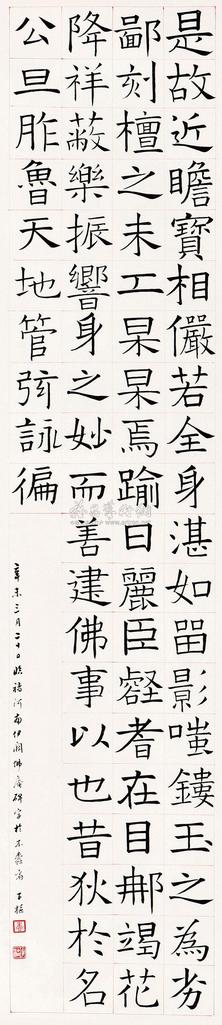 是故近瞻寶相儼若全身湛如留影嗤鏤玉之為劣
鄙刻檀之未工杲杲焉踰日麗臣壑耆在目郍竭花
降祥蔽樂振響身之妙而善建佛事以也昔狄於名
公旦胙魯天地管弦詠徧
辛未三月二十日臨褚河南伊闕佛龕碑字於不齋